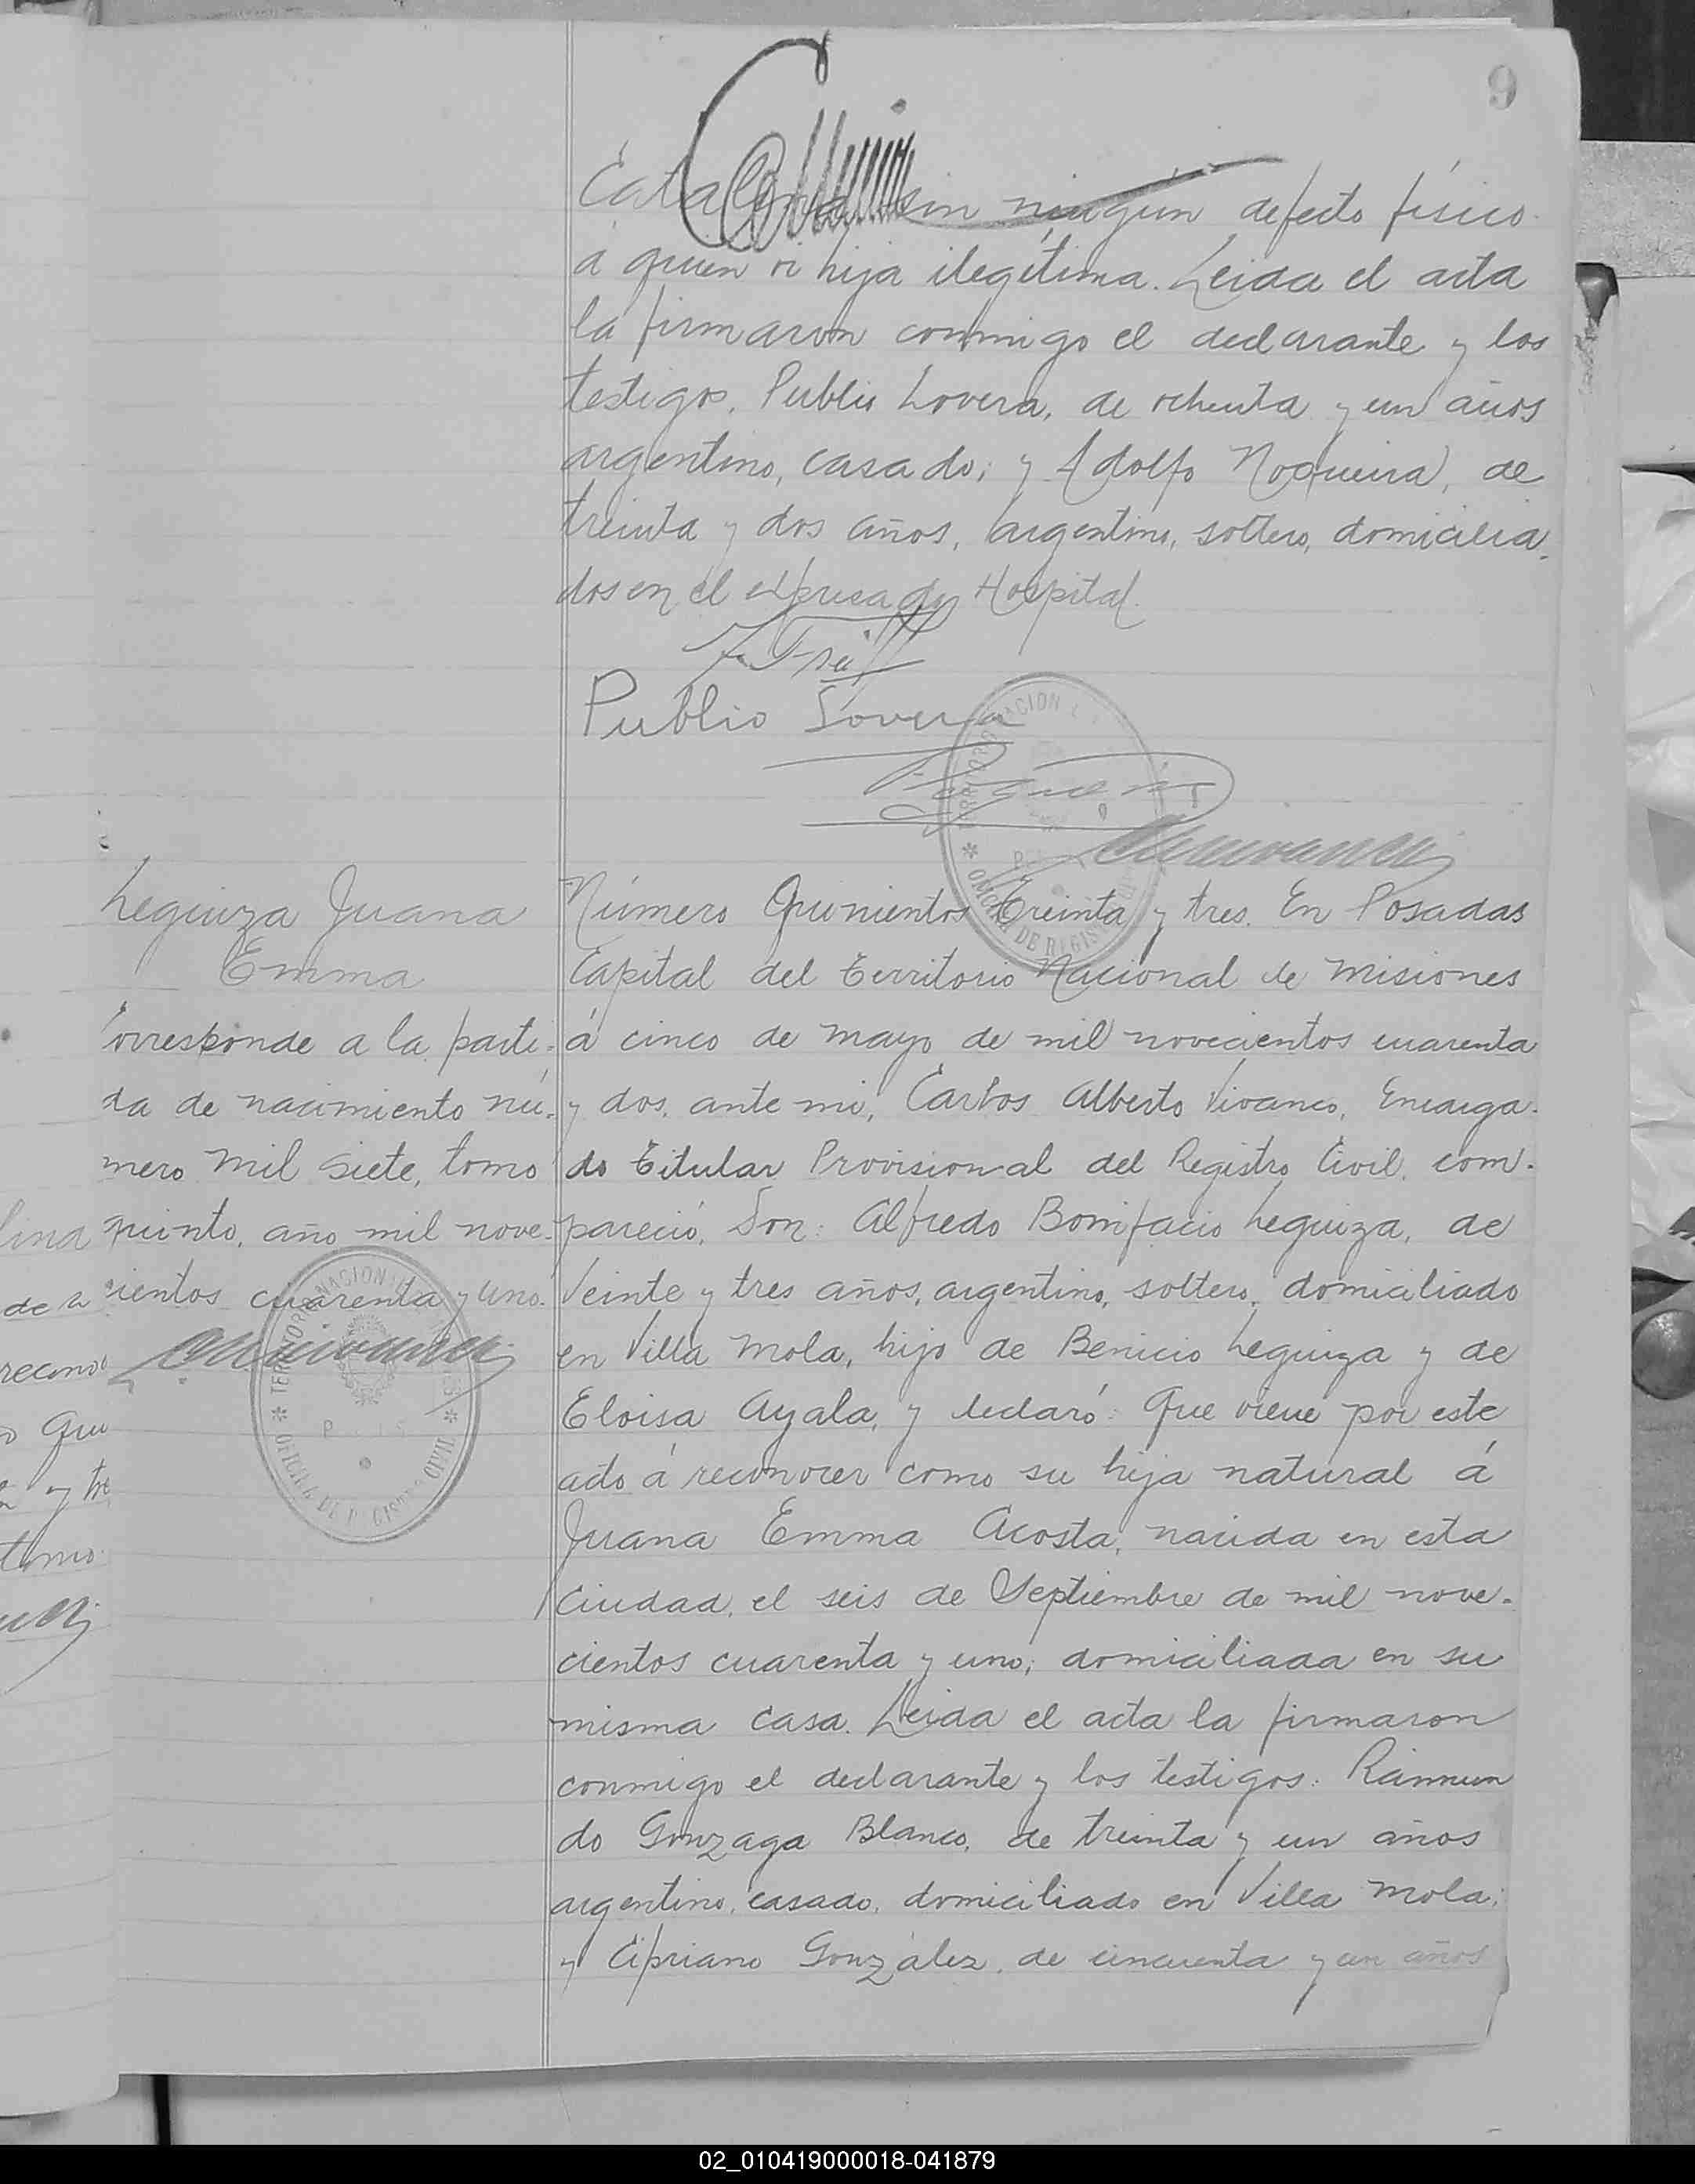 9
Catalina sin ningún defecto físico
á quien vi hija ilegítima. Leida el acta
la firmaron conmigo el declarante y los
testigos, Publio Lovera, de ochenta y un años
argentino, casado; y Adolfo Noqueira, de
treinta y dos años, argentino, soltero, domicilia-
dos en el expresado Hospital.
Publio Lovera
Leguiza Juana
Emma
Corresponde a la parti-
da de nacimiento nú-
mero mil siete, tomo
quinto, año mil nove-
cientos cuarenta y uno.
TERRITORIO NACIONAL DE MISIONES
OFICINA DE REGISTRO CIVIL
Número Quinientos Treinta y tres. En Posadas
Capital del Territorio Nacional de Misiones
á cinco de mayo de mil novecientos cuarenta
y dos, ante mi, Carlos Alberto Vivanco, Encarga-
do Titular Provisional del Registro Civil, com-
pareció, Don: Alfredo Bonifacio Leguiza, de
Veinte y tres años, argentino, soltero, domiciliado
en Villa Mola, hijo de Benicio Leguiza y de
Eloisa Ayala, y declaró: Que viene por este
acto á reconocer como su hija natural á
Juana Emma Acosta, nacida en esta
Ciudad, el seis de Septiembre de mil nove-
cientos cuarenta y uno; domiciliada en su
misma casa. Leida el acta la firmaron
conmigo el declarante y los testigos: Raimun
do Gonzaga Blanco, de treinta y un años
argentino, casado, domiciliado en Villa Mola;
y Cipriano González, de cincuenta y un años
02_010419000018-041879